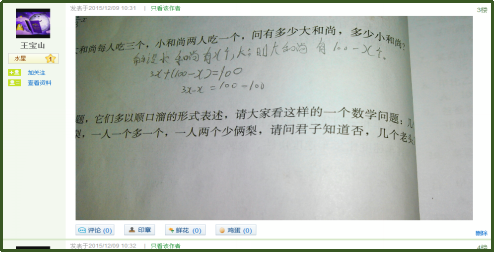 发表于2015/12/09 10:31 | 只看该作者
3楼
王宝山
水星
加关注
查看资料
大和尚每人吃三个，小和尚两人吃一个，问有多少大和尚，多少小和尚？
和尚有x个人，则大和尚有100-x个。
3x+(100-x)=100
3x-x=100-100
题，它们多以顺口溜的形式表述，请大家看这样的一个数学问题：
梨，一人一个多一个，一人两个少俩梨，请问君子知道否，几个老头
评论 (0)
印章
鲜花 (0)
鸡蛋 (0)
删除
发表于2015/12/09 10:32 | 只看该作者
4楼